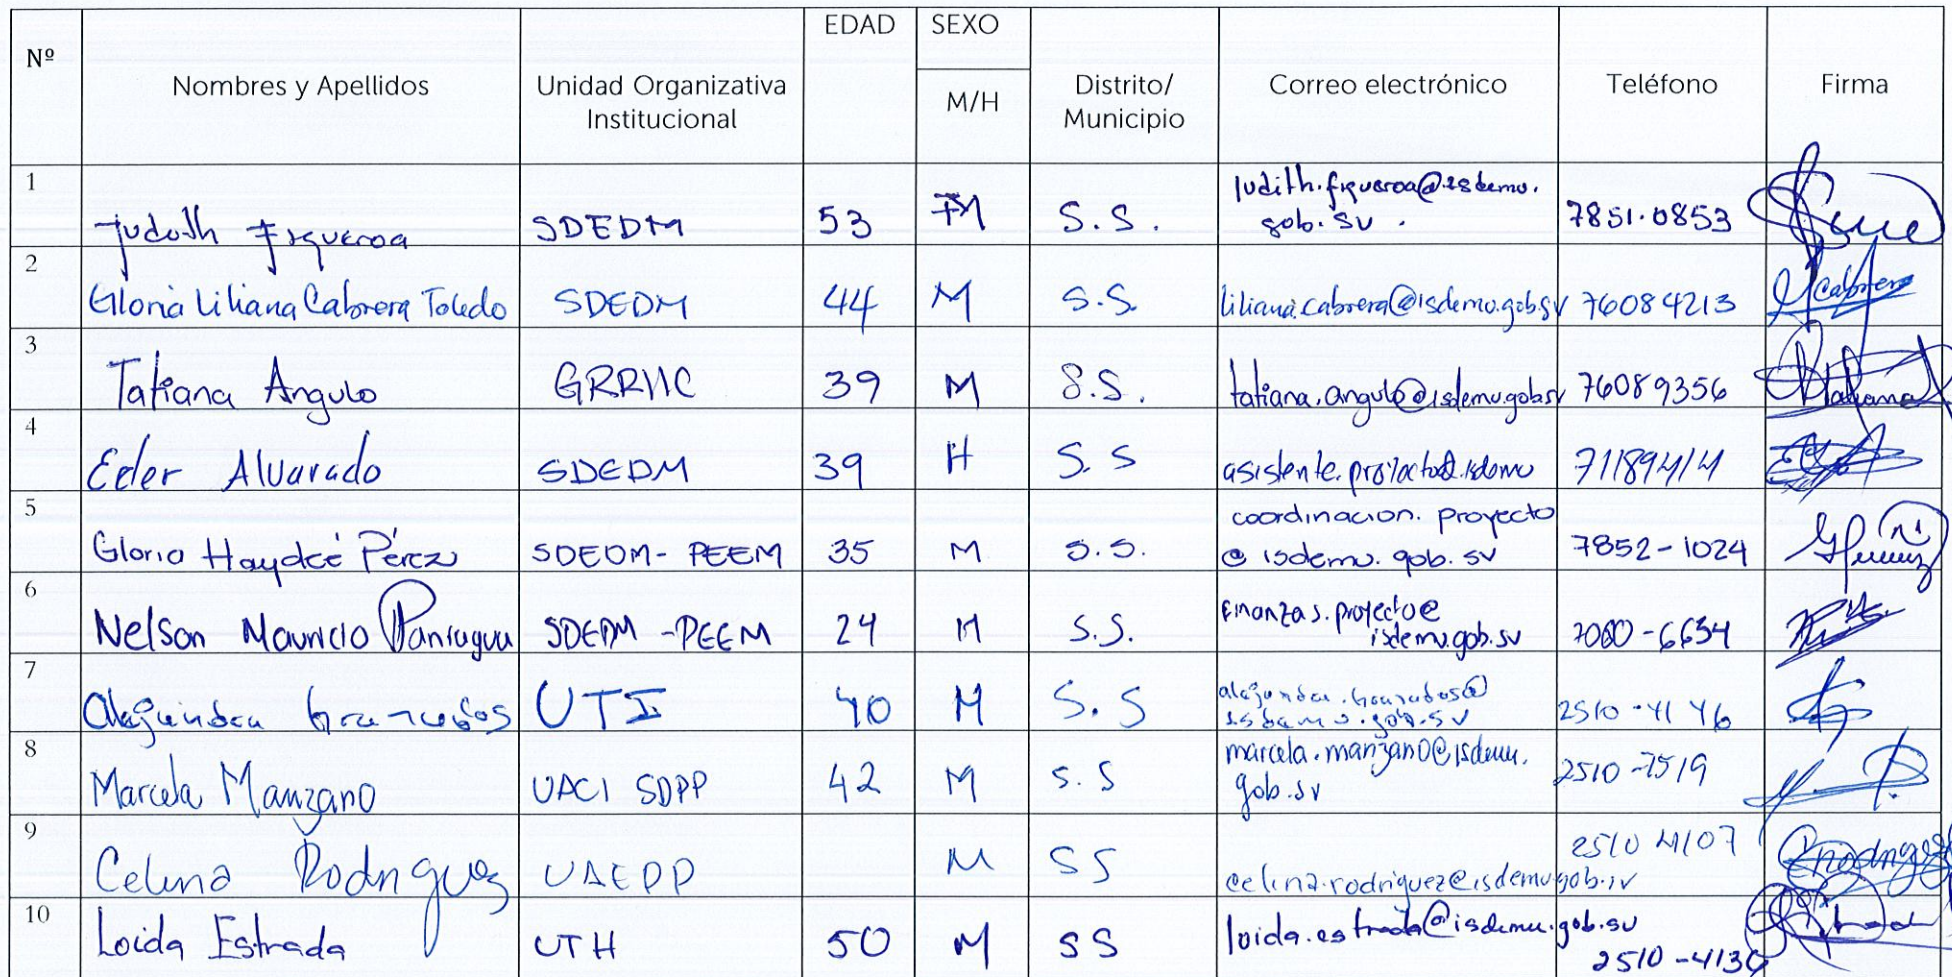 Nº Nombres y Apellidos Unidad Organizativa Institucional EDAD SEXO M/H Distrito/ Municipio Correo electrónico Teléfono Firma
1 Judith Figueroa SDEDM 53 M S.S. judith.figueroa@isdemu.gob.sv. 7851.0853
2 Gloria Liliana Cabrera Toledo SDEDM 44 M S.S. liliana.cabrera@isdemu.gob.sv 76084213 Cabrera
3 Tatiana Angulo 39 M S.S. tatiana.angulo@isdemu.gob.sv 76089356 Tatiana
4 Eder Alvarado SDEDM 39 H S.S asistente.proyecto@.isdemu
5 Gloria Haydeé Pérez SDEDM-PEEM 35 M S.S. coordinacion.proyecto@isdemu.gob.sv 7852-1024
6 Nelson Mauricio Paniagua SDEDM-PEEM 24 H S.S. finanzas.proyecto@isdemu.gob.sv
7 UTI 40 M S.S 2510-4146
8 Marcela Manzano UACI SDPP 42 M S.S marcela.manzano@isdemu.gob.sv 2510-7519
9 Celina Rodriguez UAEPP M SS celina.rodriguez@isdemu.gob.sv 2510 4107 Crodriguez
10 Loida Estrada UTH 50 M SS loida.estrada@isdemu.gob.sv